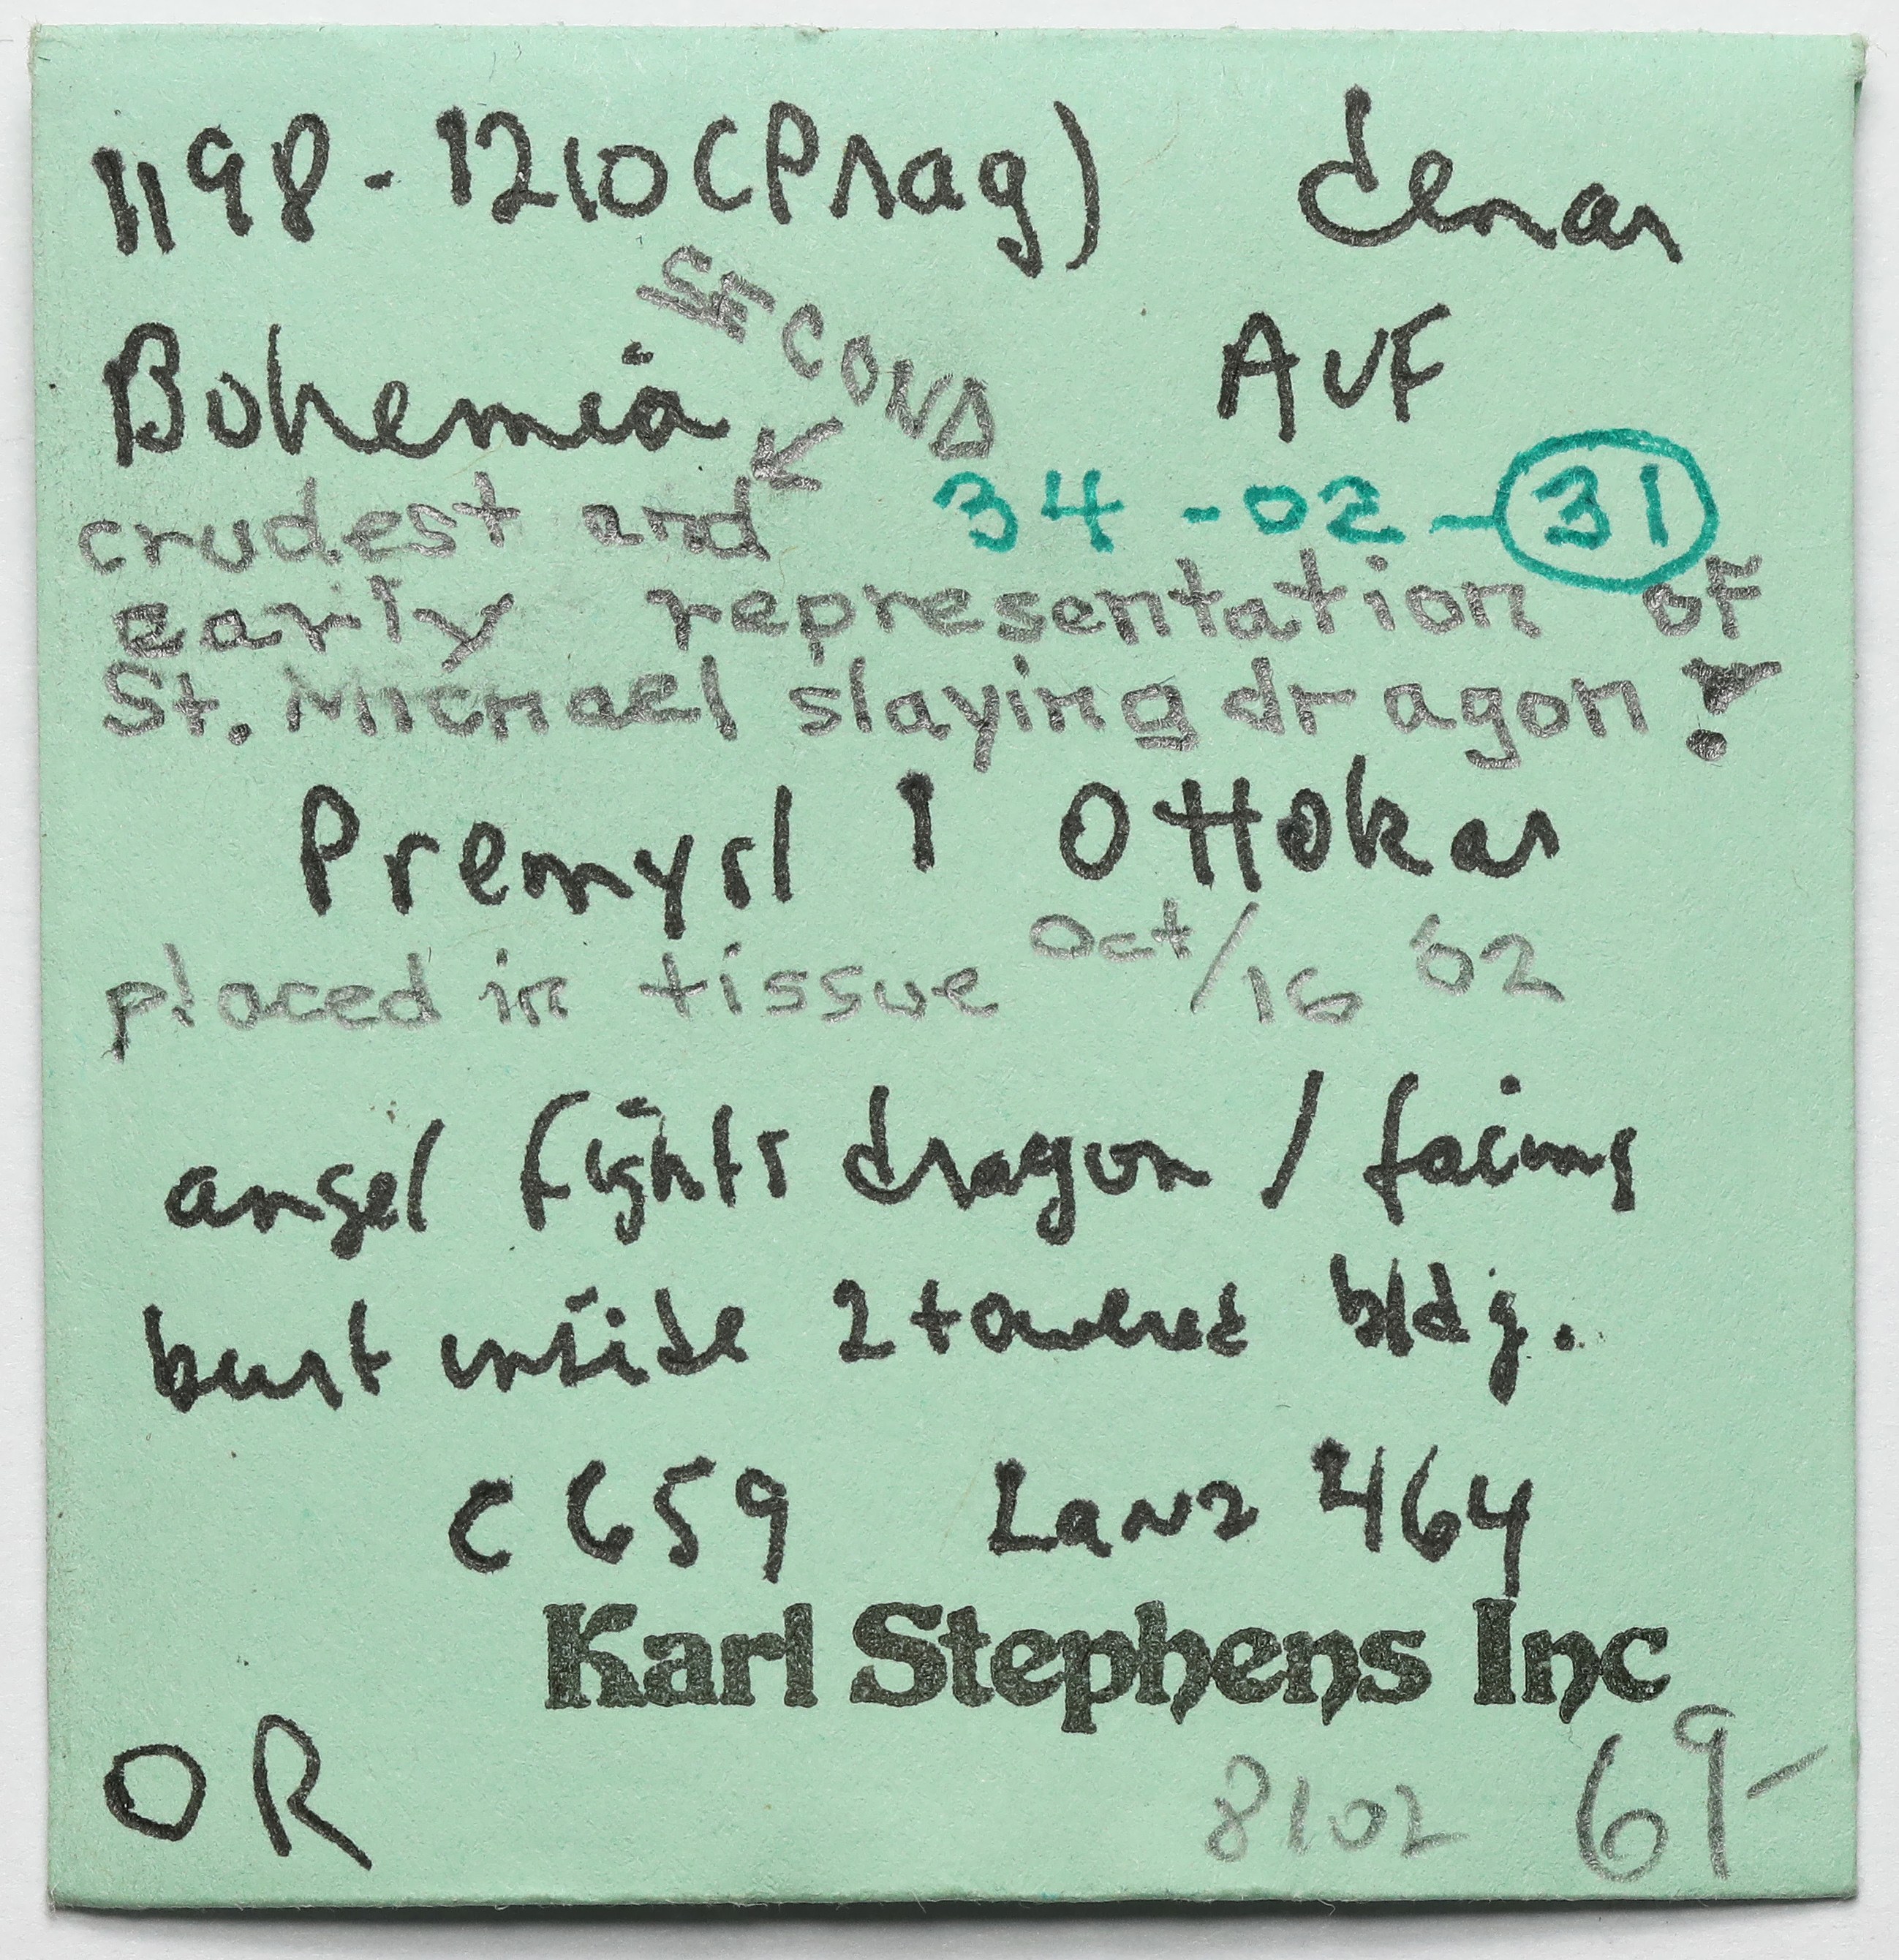 1198-1210 (Prag) denar
SECOND
Bohemia AVF
crudest and ← 34-02-31
early representation of
St. Michael slaying dragon!
Premysl I Ottokar
placed in tissue Oct/16 '02
angel fights dragon / facing
bust inside 2 towered bldg.
C 659 Lanz 464
Karl Stephens Inc
OR 8102 69-